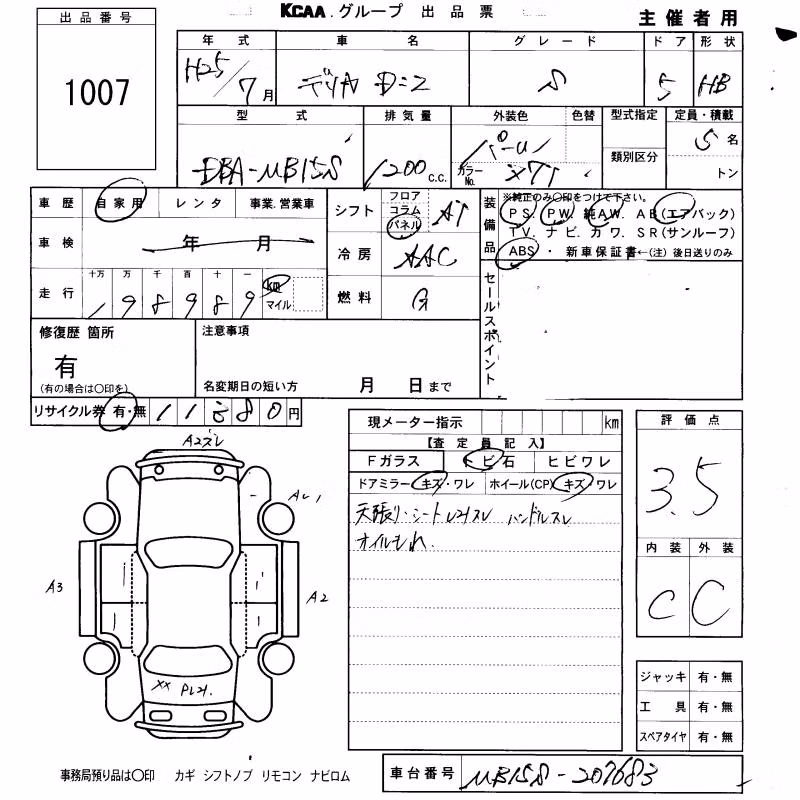 KCAA.グループ 出品票
主催者用
出品番号
1007
年式 車名 グレード ドア 形状
H25/7月 デリカ D:2 S 5 HB
型式 排気量 外装色 色替 型式指定 定員・積載
DBA-MB15S 1200 c.c. パール カラーNo. Z7T 類別区分 5名
トン
車歴 自家用 レンタ 事業.営業車 シフト フロア コラム パネル AT
装備品 ※純正のみ〇印をつけて下さい。
PS PW 純AW. AB(エアバック)
TV. ナビ. カワ. SR(サンルーフ)
ABS・新車保証書←(注)後日送りのみ
車検 年 月 冷房 AAC
走行 十万 万 千 百 十 一 km マイル 燃料 G
1 9 8 9 8 9
セールスポイント
修復歴 箇所 注意事項
有
(有の場合は〇印を) 名変期日の短い方 月 日まで
リサイクル券 有・無 11 80円
現メーター指示 km
【査定員記入】
Fガラス トビ石 ヒビワレ
ドアミラー キズ・ワレ ホイール(CP) キズ ワレ
天張り・シートヨゴレスレ ハンドルスレ
オイルもれ.
評価点
3.5
内装 外装
C C
A2スレ
A3
A2
XX
ジャッキ 有・無
工具 有・無
スペアタイヤ 有・無
事務局預り品は〇印 カギ シフトノブ リモコン ナビロム
車台番号 MB15S-207683